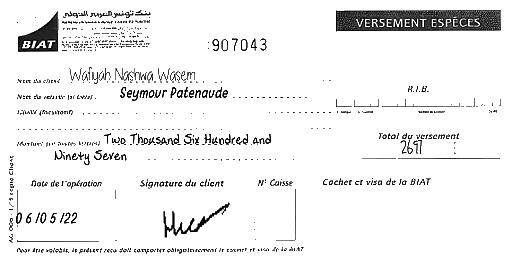 بنك تونس العربي الدولي
BIAT
VERSEMENT ESPÈCES
907043
Nom du client Wafiyah Nashwa Wasem
Seymour Patenaude
R.I.B.
Montant (en toutes lettres) Two Thousand Six Hundred and
Ninety Seven
Total du versement
2697
Date de l'opération
Signature du client
N° Caisse
Cachet et visa de la BIAT
06/05/22
Pour être valable, le présent reçu doit comporter obligatoirement le cachet et visa de la BIAT